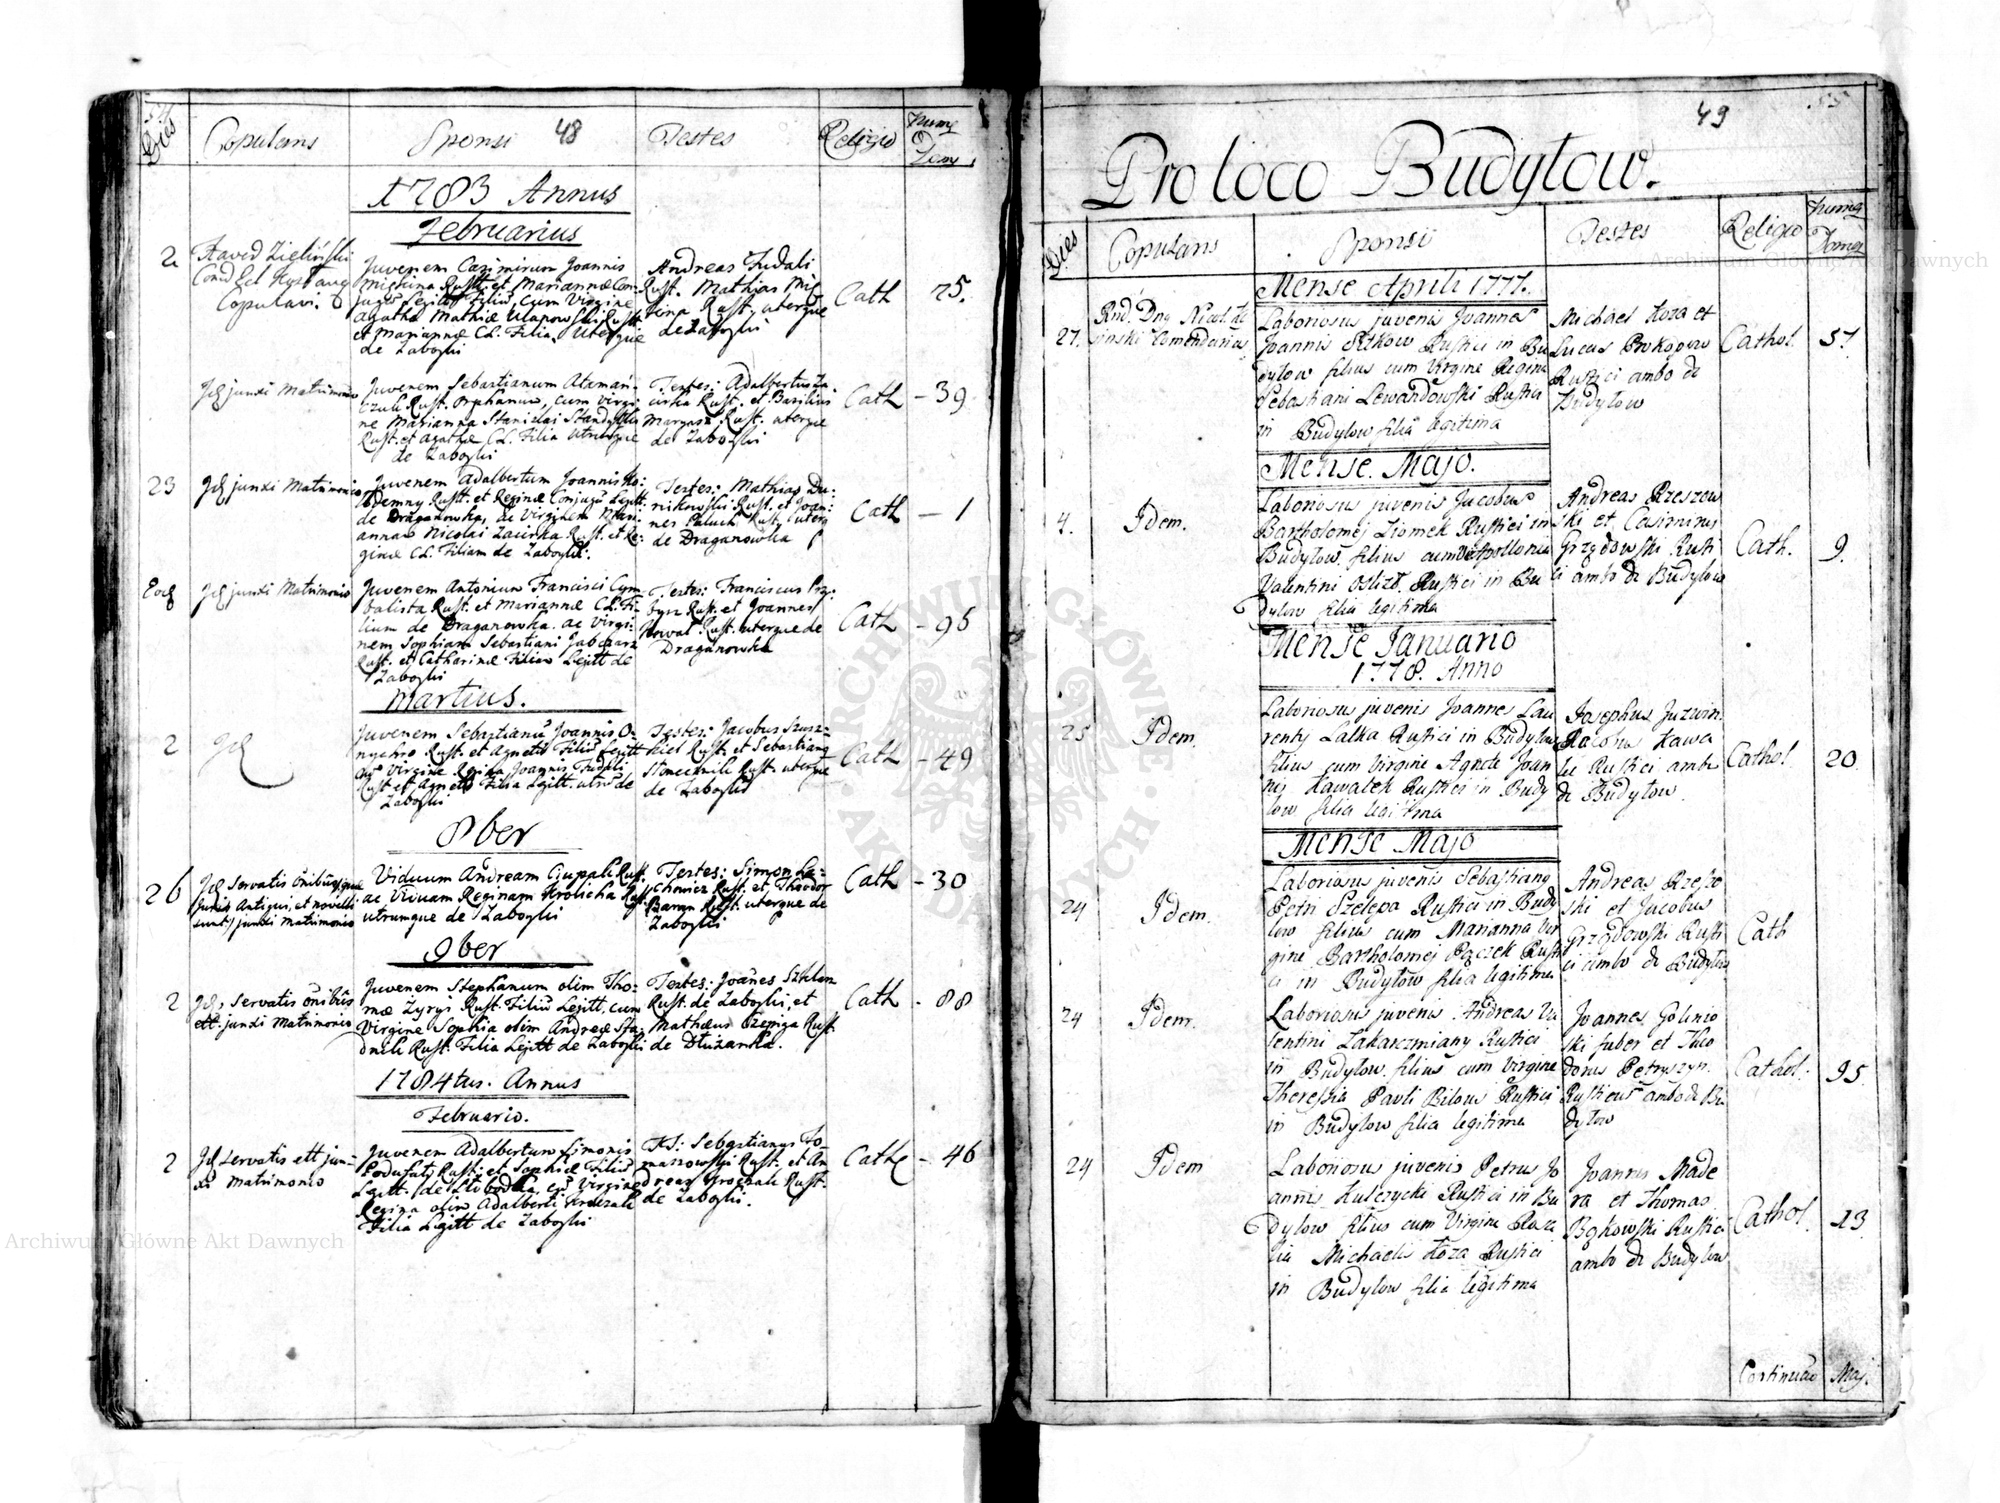 48
Dies
Copulans
Sponsi
Testes
Religio
Numq
Dom
1783 Annus
Februarius
2
Copulavi.
Juvenem Casimirum Joannis
Rustt. et Mariannæ Con-
jugū Legitt Filiū, cum Virgine
Agatha Mathiæ
et Mariannæ CL. Filia, Utersque
de Zaboyki
Andreas Fudali
Rust. Mathias Mis
tina Rust. uterque
de Zaboyki
Cath
75.
Jdē junxi Matrimonio
Juvenem Sebastianum Ataman-
czuk Rust. Orphanum, cum Virgi-
ne Marianna Stanislai
Rust. et Agathæ CL. Filia utrusque
de Zaboyki
Testes: Adalbertus Za-
cirka Rust. et Basilius
Rust. uterque
de Zaboyki
Cath
- 39
23
Jdē junxi Matrimonio
Juvenem Adalbertum Joannis
Rustt. et Reginæ Conjugū Legitt.
de Draganowka, ac Virginem Mari-
annam Nicolai Zacirka Rust. et Re-
ginæ CL. Filiam de Zaboyki.
Testes: Mathias Du-
nikowski Rust. et Joan-
nes Paluch Rust. uterq
de Draganowka
Cath
- 1
Eodē
Jdē junxi Matrimonio
Juvenem Antonium Francisci Cym-
balista Rust. et Mariannæ CL. Fi-
lium de Draganowka. ac Virgi-
nem Sophiam Sebastiani
Rust. et Catharinæ Filiam Legitt de
Zaboyki
Testes: Franciscus Prz-
bysz Rust. et Joannes
Nowak Rust. uterque de
Draganowka
Cath
- 95
Martius.
2
Jdē
Juvenem Sebastianū Joannis O-
nychro Rust. et Agnetis Filiū Legitt
cū Virgine Regina Joannis Fudali
Rust. et Agnetis Filia Legitt. utrūs de
Zaboyki
Testes: Jacobus
Rust. et Sebastianq
Rust. uterque
de Zaboyki
Cath
- 49
8ber
26
Jdē Servatis ōnibus
junxi Matrimonio
Viduum Andream Rust.
ac Viduam Reginam Krolicka Rust.
utrumque de Zaboyki
Testes: Simon La-
chowicz Rust. et Theodor
Baran Rust. uterque de
Zaboyki
Cath
- 30
9ber
2
Jdē Servatis ōnibus
ett. junxi Matrimonio
Juvenem Stephanum olim Tho-
mæ Zyrys Rust. Filiū Legitt, cum
Virgine Sophia olim Andreæ Sta-
dnik Rust. Filia Legitt de Zaboyki
Testes: Joānes
Rust. de Zaboyki, et
Mathæus Czepiga Rust.
de Dłużanka.
Cath
- 88
1784tus. Annus
Februario.
2
Jdē Servatis ett jun-
xi Matrimonio
Juvenem Adalbertum Simonis
Rust. et Sophiæ Filiū
Legitt. de Slobodka, cū Virgine
Regina olim Adalberti
Filia Legitt de Zaboyki
TS: Sebastianus To-
maszowski Rust. et An
dreas Rust.
de Zaboyki.
Cath
- 46
49
Pro loco Budyłow.
Dies
Copulans
Sponsi
Testes
Religio
Numq
Domq
Mense Aprili 1777.
27.
Rnd. Dnq
Comendarius
Laboriosus juvenis Joannes
Joannis Sitkow Rustici in Bu
dyłow filius cum Virgine Regina
Sebastiani Lewandowski Rustici
in Budyłow filiā legitima
Michael Koza et
Lucas Prokopow
Rustici ambo de
Budyłow
Cathol.
57
Mense Majo.
4.
Idem.
Laboriosus juvenis Jacobus
Bartholomej Ziomek Rustici in
Budyłow filius cum Apollonia
Valentini Rustici in Bu
dyłow filia legitima
Andreas Rzeszow
ski et Casimirus
Grządowski Rusti
ci ambo de Budyłow
Cath.
9.
Mense Januario
1778. Anno
25
Idem.
Laboriosus juvenis Joannes Lau
rentij Lalka Rustici in Budyłow
filius cum Virgine Agnete Joan
nis Kawalek Rustici in Budy
łow filia legitima
Josephus Juzwin
Jacobus Kawa
lek Rustici ambo
de Budyłow
Cathol.
20.
Mense Majo
24
Idem.
Laboriosus juvenis Sebastianq
Petri Szelepa Rustici in Budy
łow filius cum Marianna Vir
gine Bartholomej Pączek Rusti
ci in Budyłow filia legitima
Andreas Rzeszo
ski et Jacobus
Grządowski Rusti
ci ambo de Budyłow
Cath
24
Idem.
Laboriosus juvenis Andreas Va
lentini Rustici
in Budyłow filius cum Virgine
Theressia Pavli Bilous Rustici
in Budyłow filia legitima
Joannes Golinio
ski faber et Theo
dorus Petryszyn.
Rusticus ambo de Bu
dyłow
Cathol.
95
24
Idem
Laboriosus juvenis Petrus Jo
annis Kulczycki Rustici in Bu
dyłow filius cum Virgine Roza
lia Michaelis Koza Rustici
in Budyłow filia legitima
Joannis Made
ra et Thomas
Bąkowski Rustici
ambo de Budyłow
Cathol.
23
Continuāo Maj.
Archiwum Główne Akt Dawnych
Archiwum Główne Akt Dawnych
ARCHIWUM GŁÓWNE AKT DAWNYCH